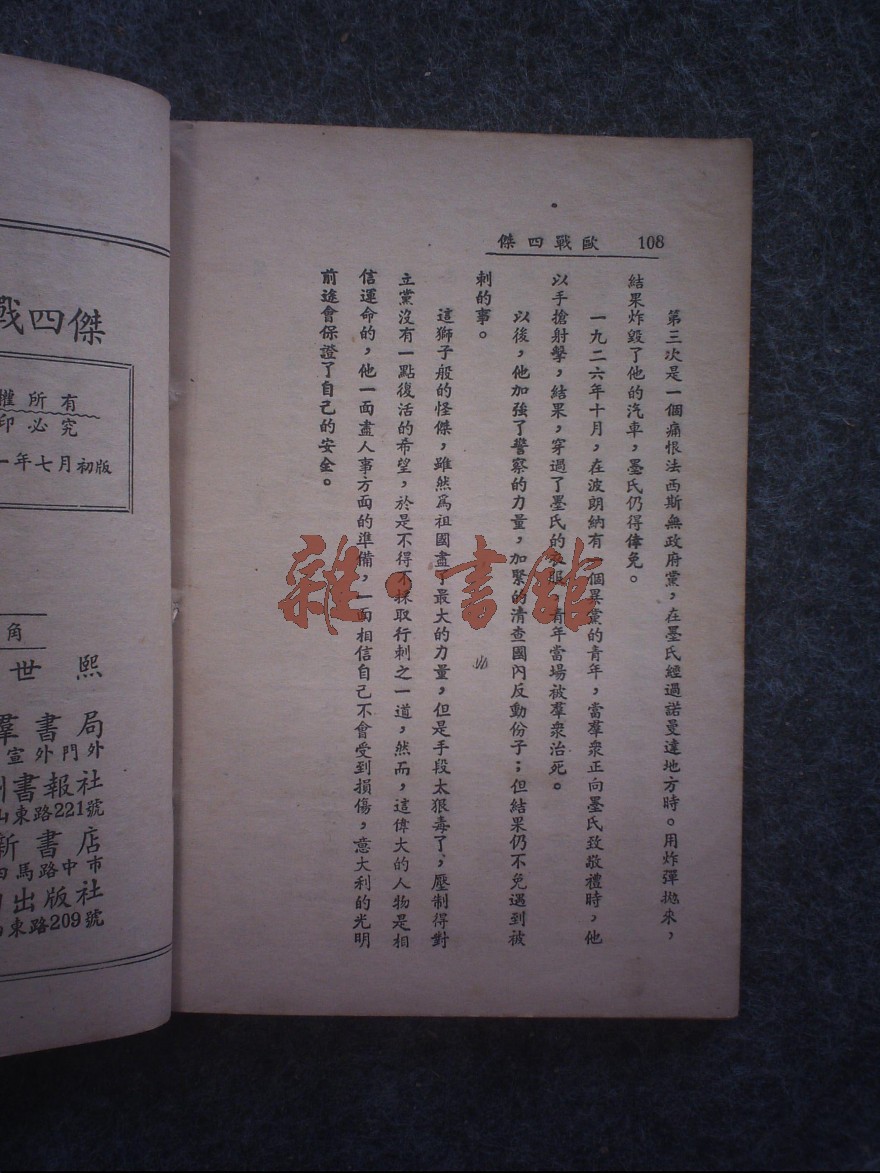 歐戰四傑 108
第三次是一個痛恨法西斯無政府黨，在墨氏經過諾曼達地方時。用炸彈拋來，
結果炸毀了他的汽車，墨氏仍得倖免。
一九二六年十月，在波朗納有一個異黨的青年，當羣衆正向墨氏致敬禮時，他
以手搶射擊，結果，穿過了墨氏的衣服，青年當場被羣衆治死。
以後，他加強了警察的力量，加緊的清查國內反動份子；但結果仍不免遇到被
刺的事。
這獅子般的怪傑，雖然爲祖國盡了最大的力量，但是手段太狠毒了，壓制得對
立黨沒有一點復活的希望，於是不得不採取行刺之一道，然而，這偉大的人物是相
信運命的，他一面盡人事方面的準備，一面相信自己不會受到損傷，意大利的光明
前途會保證了自己的安全。
雜·書館
戰四傑
權所有
印必究
一年七月初版
角
世熙
羣書局
宣外門外
書報社
山東路221號
新書店
馬路中市
出版社
東路209號